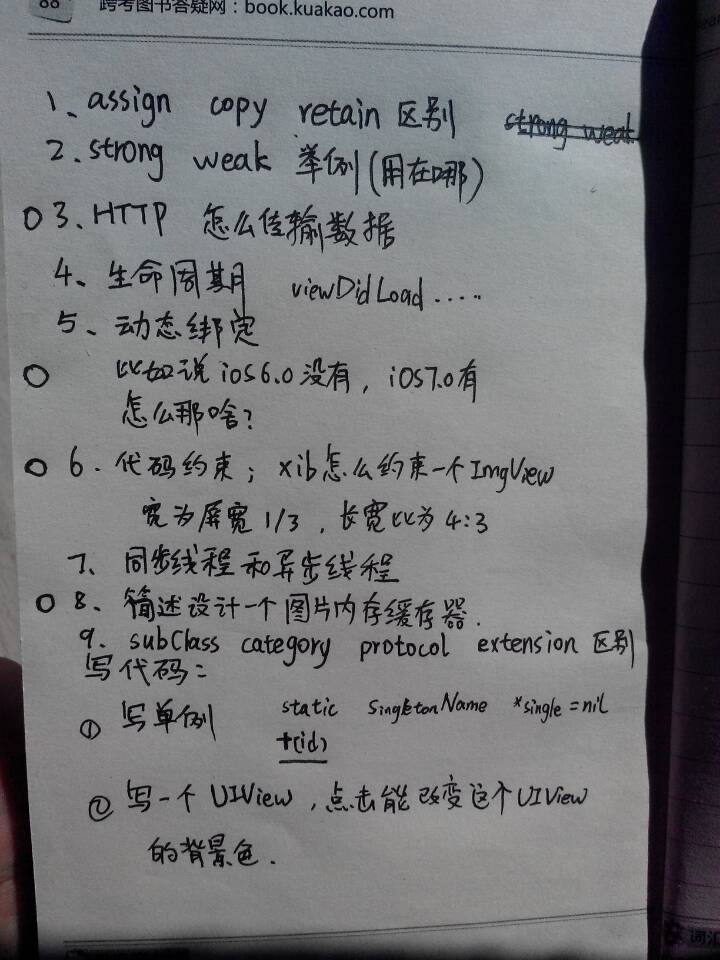 88 跨考图书答疑网：book.kuakao.com
1、assign copy retain 区别 strong weak
2、strong weak 举例(用在哪)
3、HTTP 怎么传输数据
4、生命周期 viewDidLoad.....
5、动态绑定
比如说 iOS6.0 没有，iOS7.0有
怎么那啥?
6. 代码约束；xib怎么约束一个ImgView
宽为屏宽 1/3，长宽比为 4:3
7、同步线程和异步线程
8、简述设计一个图片内存缓存器.
9. subClass category protocol extension 区别
写代码：
① 写单例 static SingletonName *single = nil
+(id)
② 写一个 UIView，点击能改变这个UIView
的背景色.
词汇